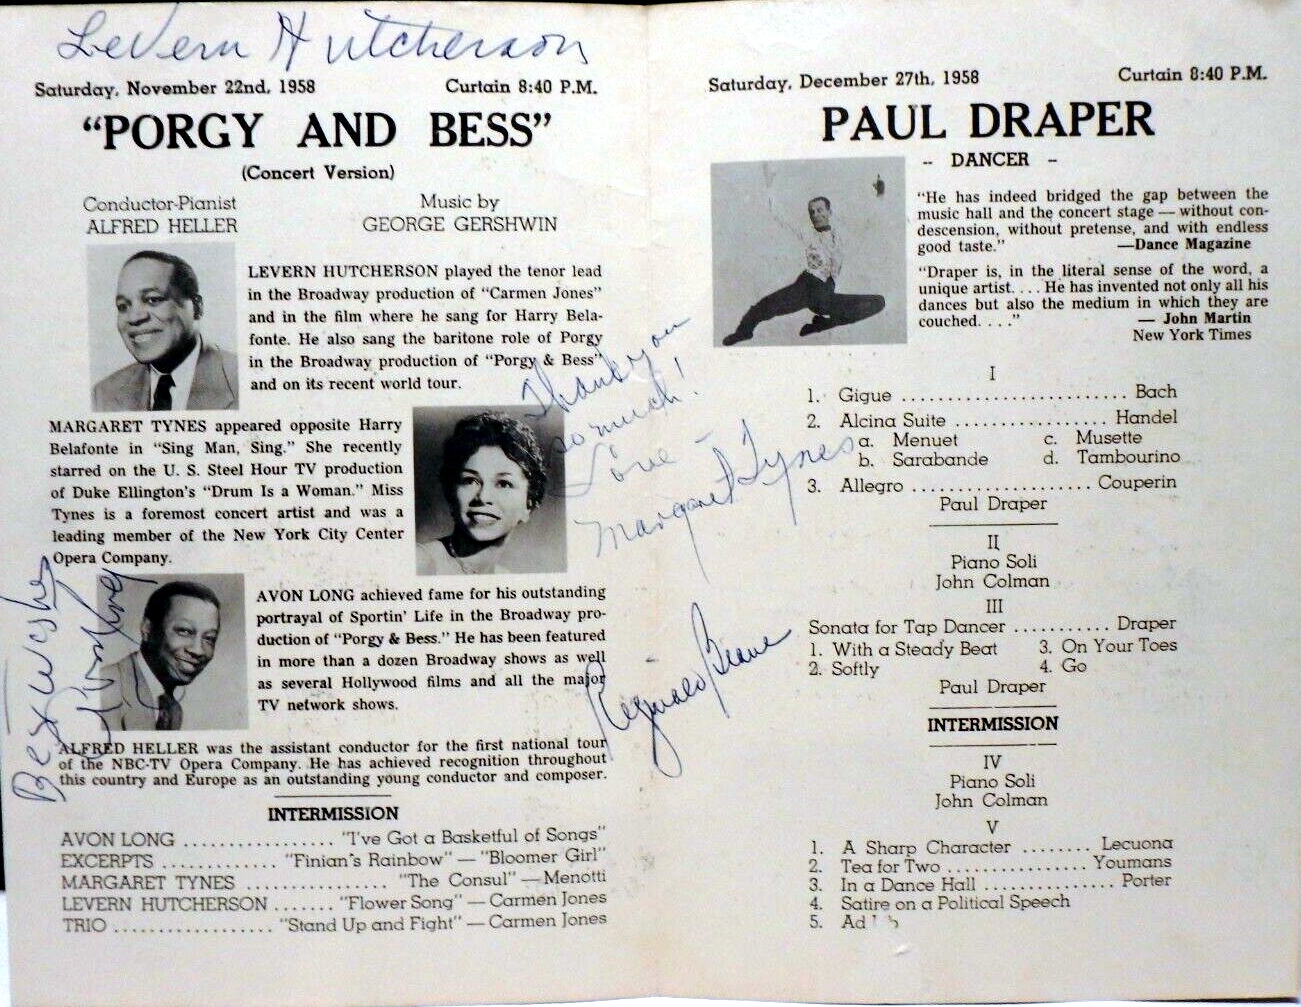 LeVern Hutcherson
Saturday, November 22nd, 1958 Curtain 8:40 P.M.
"PORGY AND BESS"
(Concert Version)
Conductor-Pianist
ALFRED HELLER
Music by
GEORGE GERSHWIN
LEVERN HUTCHERSON played the tenor lead
in the Broadway production of "Carmen Jones"
and in the film where he sang for Harry Bela-
fonte. He also sang the baritone role of Porgy
in the Broadway production of "Porgy & Bess"
and on its recent world tour.
MARGARET TYNES appeared opposite Harry
Belafonte in "Sing Man, Sing." She recently
starred on the U. S. Steel Hour TV production
of Duke Ellington's "Drum Is a Woman." Miss
Tynes is a foremost concert artist and was a
leading member of the New York City Center
Opera Company.
Thank you
so much!
Love
Margaret Tynes
Best Wishes
Avon Long
AVON LONG achieved fame for his outstanding
portrayal of Sportin' Life in the Broadway pro-
duction of "Porgy & Bess." He has been featured
in more than a dozen Broadway shows as well
as several Hollywood films and all the major
TV network shows.
Reginald Beane
ALFRED HELLER was the assistant conductor for the first national tour
of the NBC-TV Opera Company. He has achieved recognition throughout
this country and Europe as an outstanding young conductor and composer.
INTERMISSION
AVON LONG ................. "I've Got a Basketful of Songs"
EXCERPTS ............. "Finian's Rainbow" — "Bloomer Girl"
MARGARET TYNES ................ "The Consul" — Menotti
LEVERN HUTCHERSON ....... "Flower Song" — Carmen Jones
TRIO .................. "Stand Up and Fight" — Carmen Jones
Saturday, December 27th, 1958 Curtain 8:40 P.M.
PAUL DRAPER
-- DANCER --
"He has indeed bridged the gap between the
music hall and the concert stage — without con-
descension, without pretense, and with endless
good taste." —Dance Magazine
"Draper is, in the literal sense of the word, a
unique artist. . . . He has invented not only all his
dances but also the medium in which they are
couched. . . ." — John Martin
New York Times
I
1. Gigue .......................... Bach
2. Alcina Suite ................. Handel
a. Menuet c. Musette
b. Sarabande d. Tambourino
3. Allegro .................... Couperin
Paul Draper
II
Piano Soli
John Colman
III
Sonata for Tap Dancer ........... Draper
1. With a Steady Beat 3. On Your Toes
2. Softly 4. Go
Paul Draper
INTERMISSION
IV
Piano Soli
John Colman
V
1. A Sharp Character ........ Lecuona
2. Tea for Two ................ Youmans
3. In a Dance Hall ............... Porter
4. Satire on a Political Speech
5. Ad